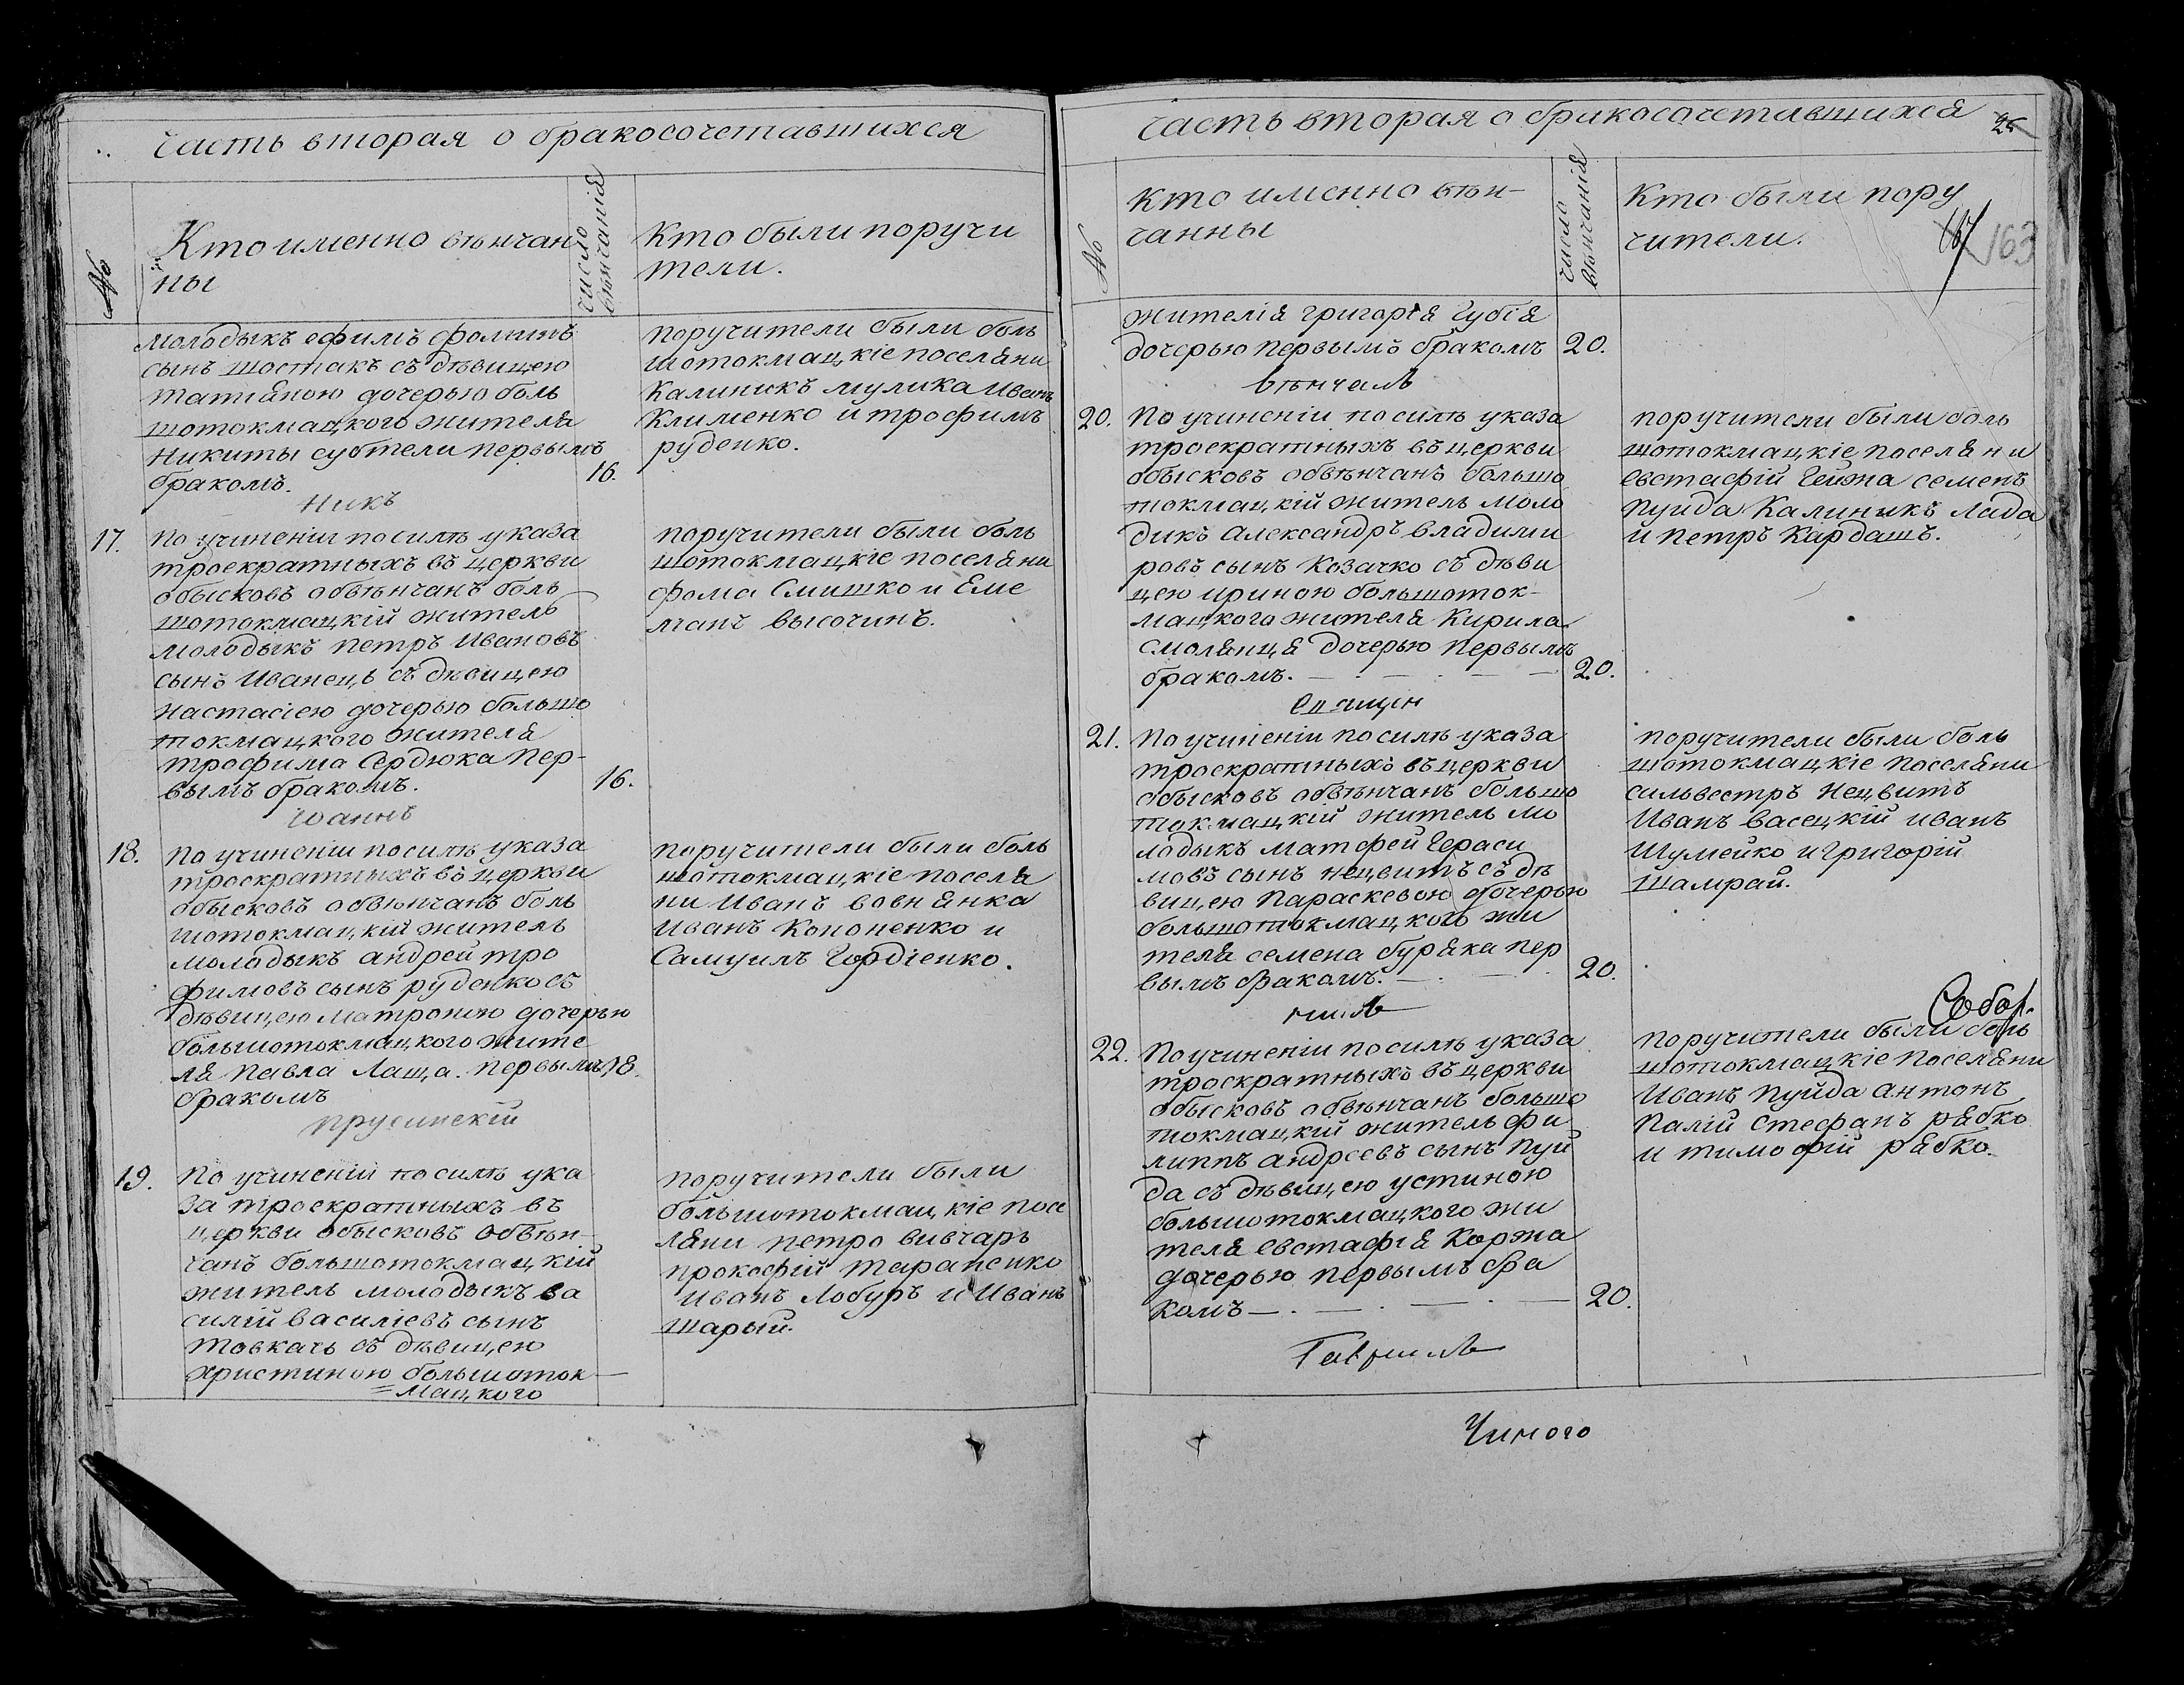 часть вторая о бракосочетавшихся
№
Кто именно вѣнчан
ны
число вѣнчанія
Кто были поручи
тели.
молодыкъ ефимъ фоминъ
сынъ шостакъ съ дѣвицею
татіяною дочерью боль
шотокмацкого жителя
никиты субтели первымъ
бракомъ.
16.
поручители были боль
шотокмацкіе поселяни
Калиникъ мулика Иванъ
Клименко и трофимъ
руденко.
Никъ
17.
По учиненіи по силѣ указа
троекратныхъ въ церкви
обысковъ обвѣнчанъ боль
шотокмацкій житель
молодыкъ петръ Ивановъ
сынъ Иванець съ дѣвицею
настасіею дочерью большо
токмацкого жителя
трофима Сердюка пер-
вымъ бракомъ.
16.
поручители были боль
шотокмацкіе поселяни
фома Смишко и Еме
лянъ высочинъ.
Іоаннъ
18.
По учиненіи по силѣ указа
троекратныхъ въ церкви
обысковъ обвѣнчанъ боль
шотокмацкій житель
молодыкъ андрей тро
фимовъ сынъ руденко съ
дѣвицею матроною дочерью
большотокмацкого жите
ля павла Лаща. первымъ
бракомъ
18.
поручители были боль
шотокмацкіе поселя
ни Иванъ вовнянка
Иванъ Кононенко и
Самуилъ Гордіенко.
прусинскій
19.
По учиненіи по силѣ ука
за троекратныхъ въ
церкви обысковъ обвѣн-
чанъ большотокмацкій
житель молодыкъ ва
силій василіевъ сынъ
товкачь съ дѣвицею
христиною большоток
=мацкого
поручители были
большотокмацкіе посе
ляни петро вивчаръ
прокофій тараненко
Иванъ Лобуръ и Иванъ
шарый.
часть вторая о бракосочетавшихся
163
№
Кто именно вѣн-
чанны
число вѣнчанія
Кто были пору
чители.
жителія григорія Губія
дочерью первымъ бракомъ
20.
вѣнчалъ
20.
По учиненіи по силѣ указа
троекратныхъ въ церкви
обысковъ обвѣнчанъ большо
токмацкій житель моло
дикъ Александръ владими
ровъ сынъ Козачко съ дѣви
цею ириною большоток-
мацкого жителя Кирила
смолянця дочерью первымъ
бракомъ.
20.
поручители были боль
шотокмацкіе поселяни
евстафій Гейжа семенъ
Пуйда Калиникъ Лада
и петръ Кардашъ.
21.
По учиненіи по силѣ указа
троекратныхъ въ церкви
обысковъ обвѣнчанъ большо
токмацкій житель мо
лодыкъ матфей Гераси
мовъ сынъ нецвитъ съ дѣ
вицею параскевою дочерью
большотокмацкого жи
теля семена буряка пер
вымъ бракомъ.
20.
поручители были боль
шотокмацкіе поселяни
сильвестръ нецвитъ
Иванъ васецкій иванъ
Шумейко и григорій
шамрай.
Собор.
22.
По учиненіи по силѣ указа
троекратныхъ въ церкви
обысковъ обвѣнчанъ большо
токмацкій житель фи
липпъ андреевъ сынъ Пуй
да съ дѣвицею устиною
большотокмацкого жи
теля евстафія Коржа
дочерью первымъ бра
комъ
20.
поручители были боль
шотокмацкіе поселяни
Иванъ пуйда антонъ
Палій стефанъ рябко
и тимофій рябко.
Гавріилъ